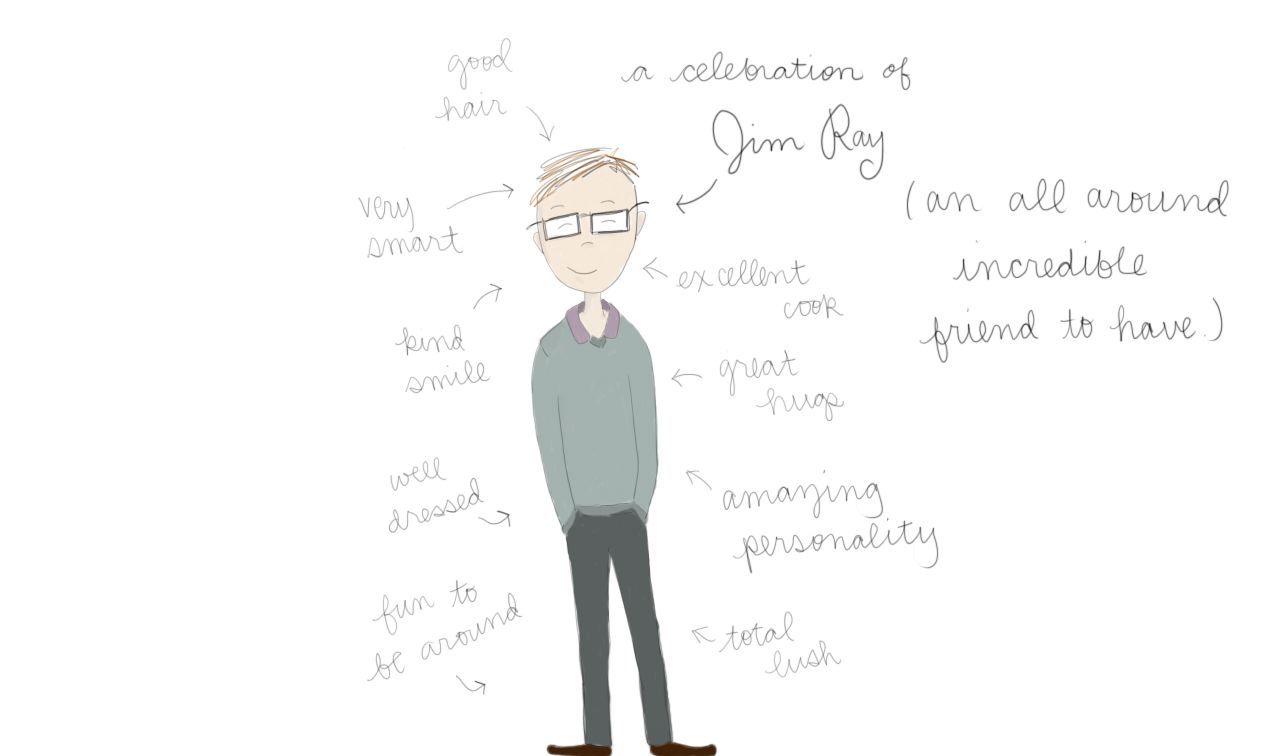 a celebration of
Jim Ray
(an all around
incredible
friend to have.)
good
hair
very
smart
kind
smile
well
dressed
fun to
be around
excellent
cook
great
hugs
amazing
personality
total
lush